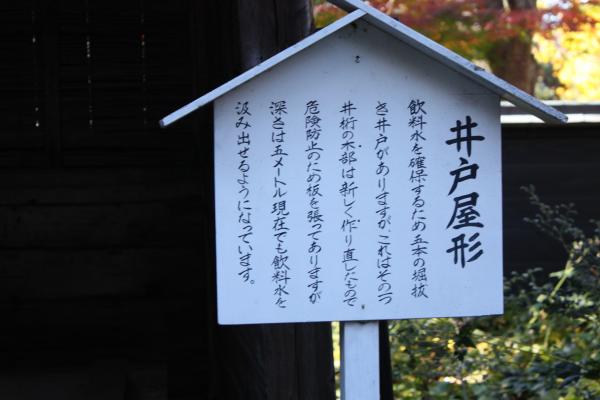 井戸屋形
飲料水を確保するため五本の堀抜
き井戸がありますが、これはその一つ
井桁の木部は新しく作り直したもので
危険防止のため板を張ってありますが
深さは五メートル現在でも飲料水を
汲み出せるようになっています。